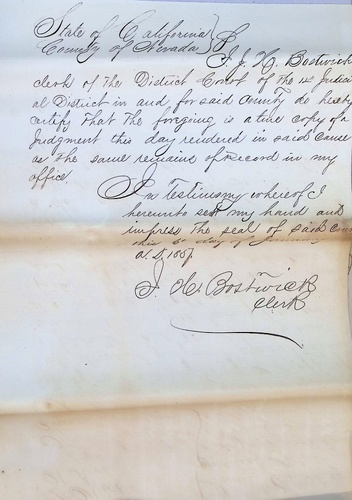 State of California }
County of Nevada } I J. H. Bostwick
clerk of the District Court of the 14 Judici
al District in and for said County do hereby
certify that the foregoing is a true copy of a
Judgment this day rendered in said cause
as the same remains of record in my
office.
In Testimony whereof I
hereunto set my hand and
impress the seal of said Court
this day of January
A.D. 1857
J. H. Bostwick
Clerk